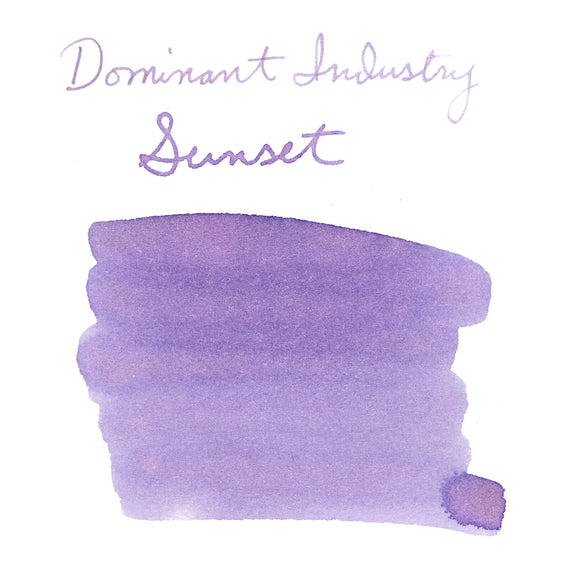 Dominant Industry
Sunset